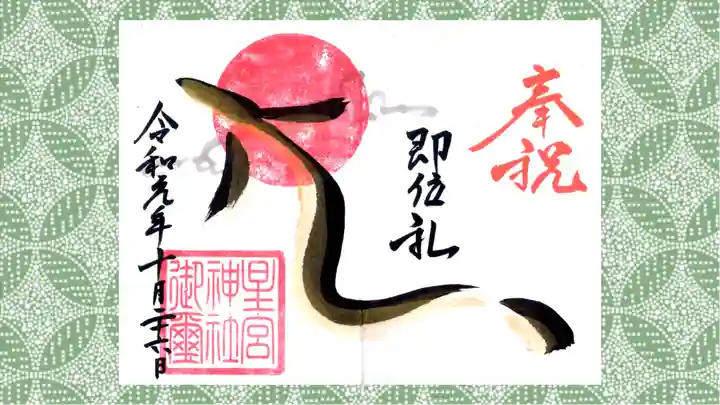 奉祝
即位礼
星宮
神社
御璽
令和元年十月二十六日